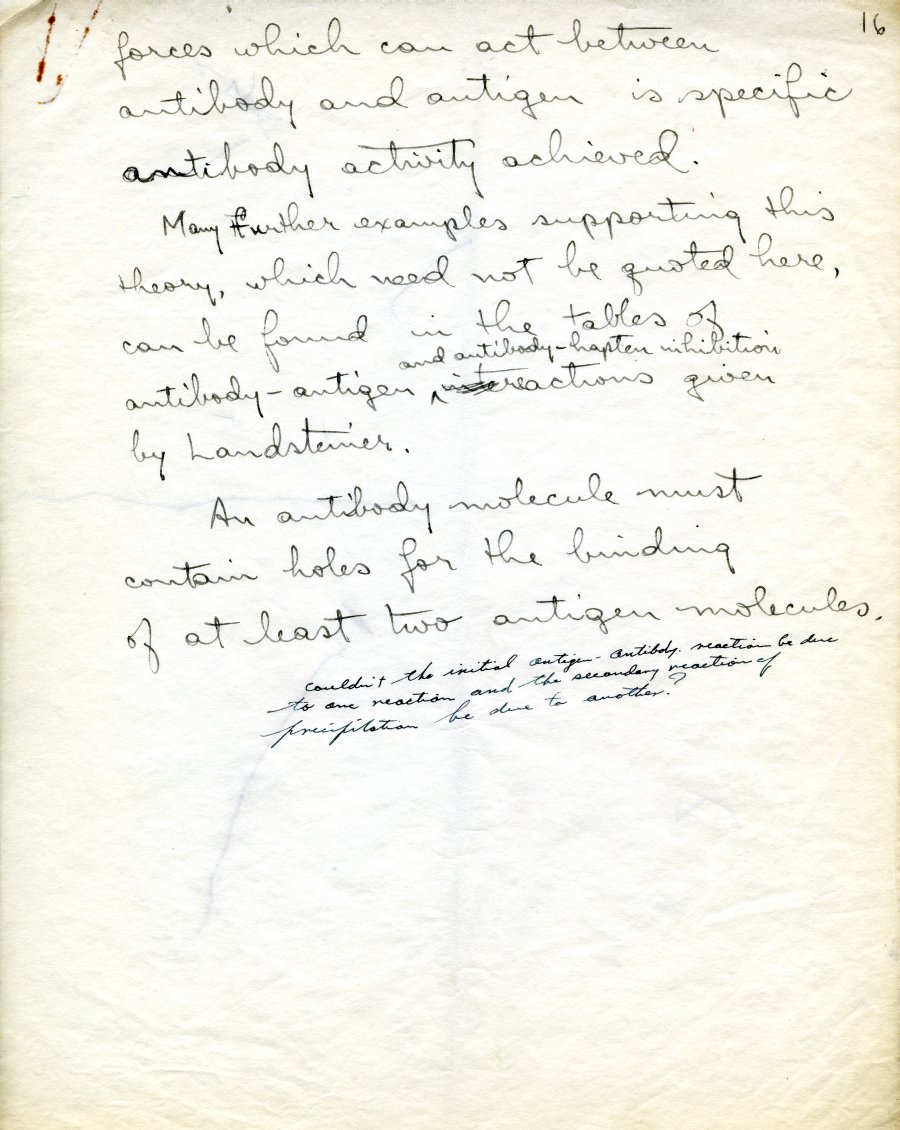 16
forces which can act between
antibody and antigen is specific
antibody activity achieved.
Many further examples supporting this
theory, which need not be quoted here,
can be found in the tables of
and antibody-hapten inhibition
antibody-antigen ^ reactions given
by Landsteiner.
An antibody molecule must
contain holes for the binding
of at least two antigen molecules.
couldn't the initial antigen-antibody reaction be due
to one reaction and the secondary reaction of
precipitation be due to another?